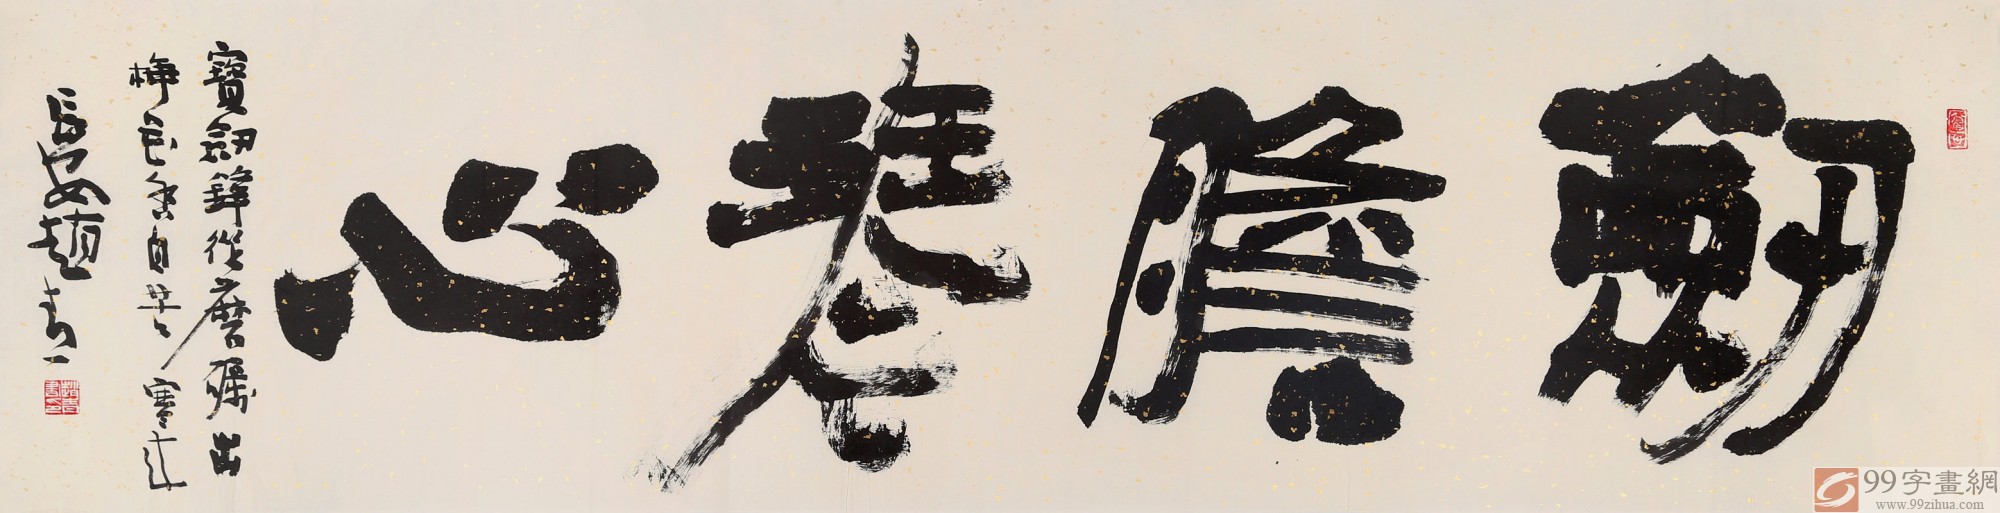 劒膽琴心
寶劒鋒從磨礪出
梅花香自苦寒來
長安趙青一
99字畫網
www.99zihua.com